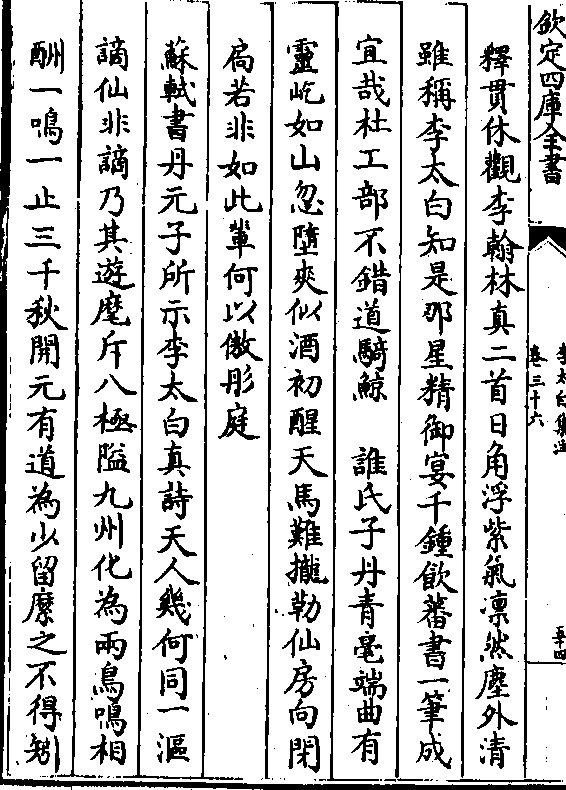 欽定四庫全書
李太白集注
卷三十六
二十四
釋貫休觀李翰林真二首日角浮紫氣凛然塵外清
雖稱李太白知是那星精御宴千鍾飲蕃書一筆成
宜哉杜工部不錯道騎鯨　誰氏子丹青毫端曲有
靈屹如山忽墮爽似酒初醒天馬難攏勒仙房向閉
扃若非如此輩何以傲彤庭
蘇軾書丹元子所示李太白真詩天人幾何同一漚
謫仙非謫乃其遊麾斥八極隘九州化為兩鳥鳴相
酬一鳴一止三千秋開元有道為少留縻之不得矧